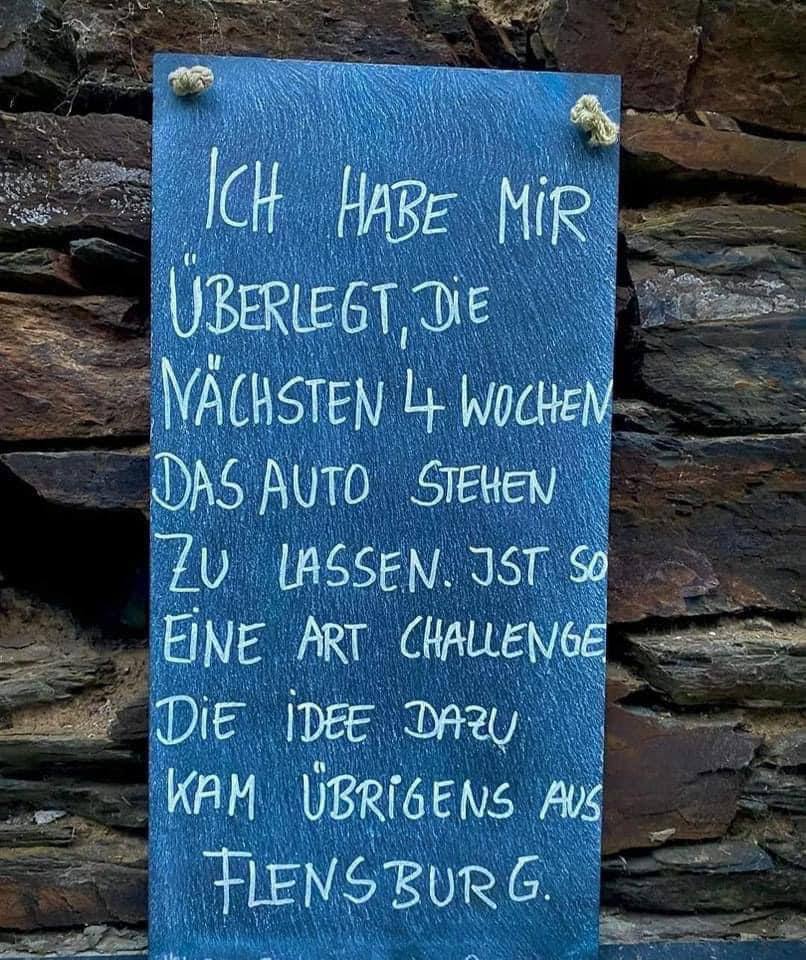 ICH HABE MIR
ÜBERLEGT, DIE
NÄCHSTEN 4 WOCHEN
DAS AUTO STEHEN
ZU LASSEN. IST SO
EINE ART CHALLENGE
DIE IDEE DAZU
KAM ÜBRIGENS AUS
FLENSBURG.